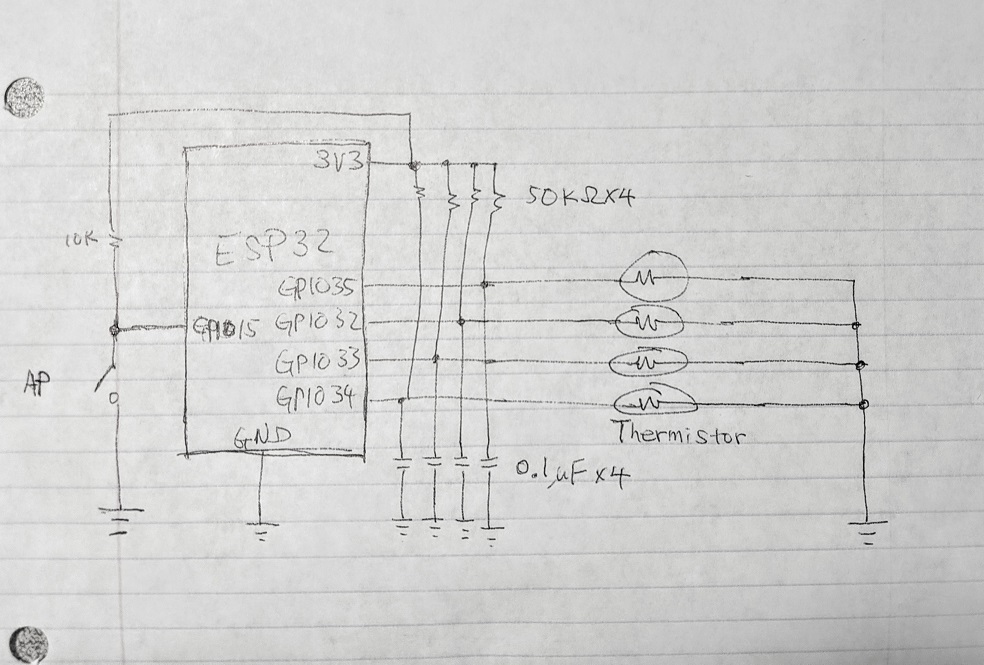 3V3
50KΩX4
10K
ESP32
GPIO35
GPIO15 GPIO32
GPIO33
AP
GPIO34
Thermistor
GND
0.1uF x4